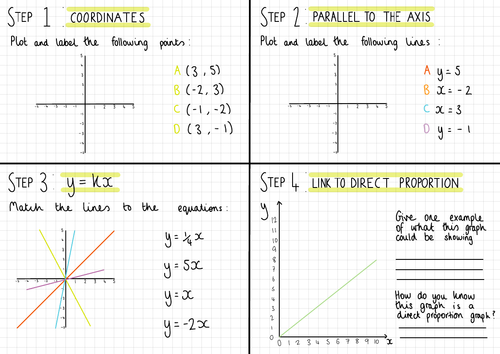 STEP 1 COORDINATES
Plot and label the following points:
A (3, 5)
B (-2, 3)
C (-1, -2)
D (3, -1)
STEP 2 PARALLEL TO THE AXIS
Plot and label the following lines:
A y = 5
B x = -2
C x = 3
D y = -1
STEP 3 : y = kx
Match the lines to the equations:
y = ¼x
y = 5x
y = x
y = -2x
STEP 4 LINK TO DIRECT PROPORTION
y
12
11
10
9
8
7
6
5
4
3
2
1
0
0 1 2 3 4 5 6 7 8 9 10 x
Give one example
of what this graph
could be showing
How do you know
this graph is a
direct proportion graph?